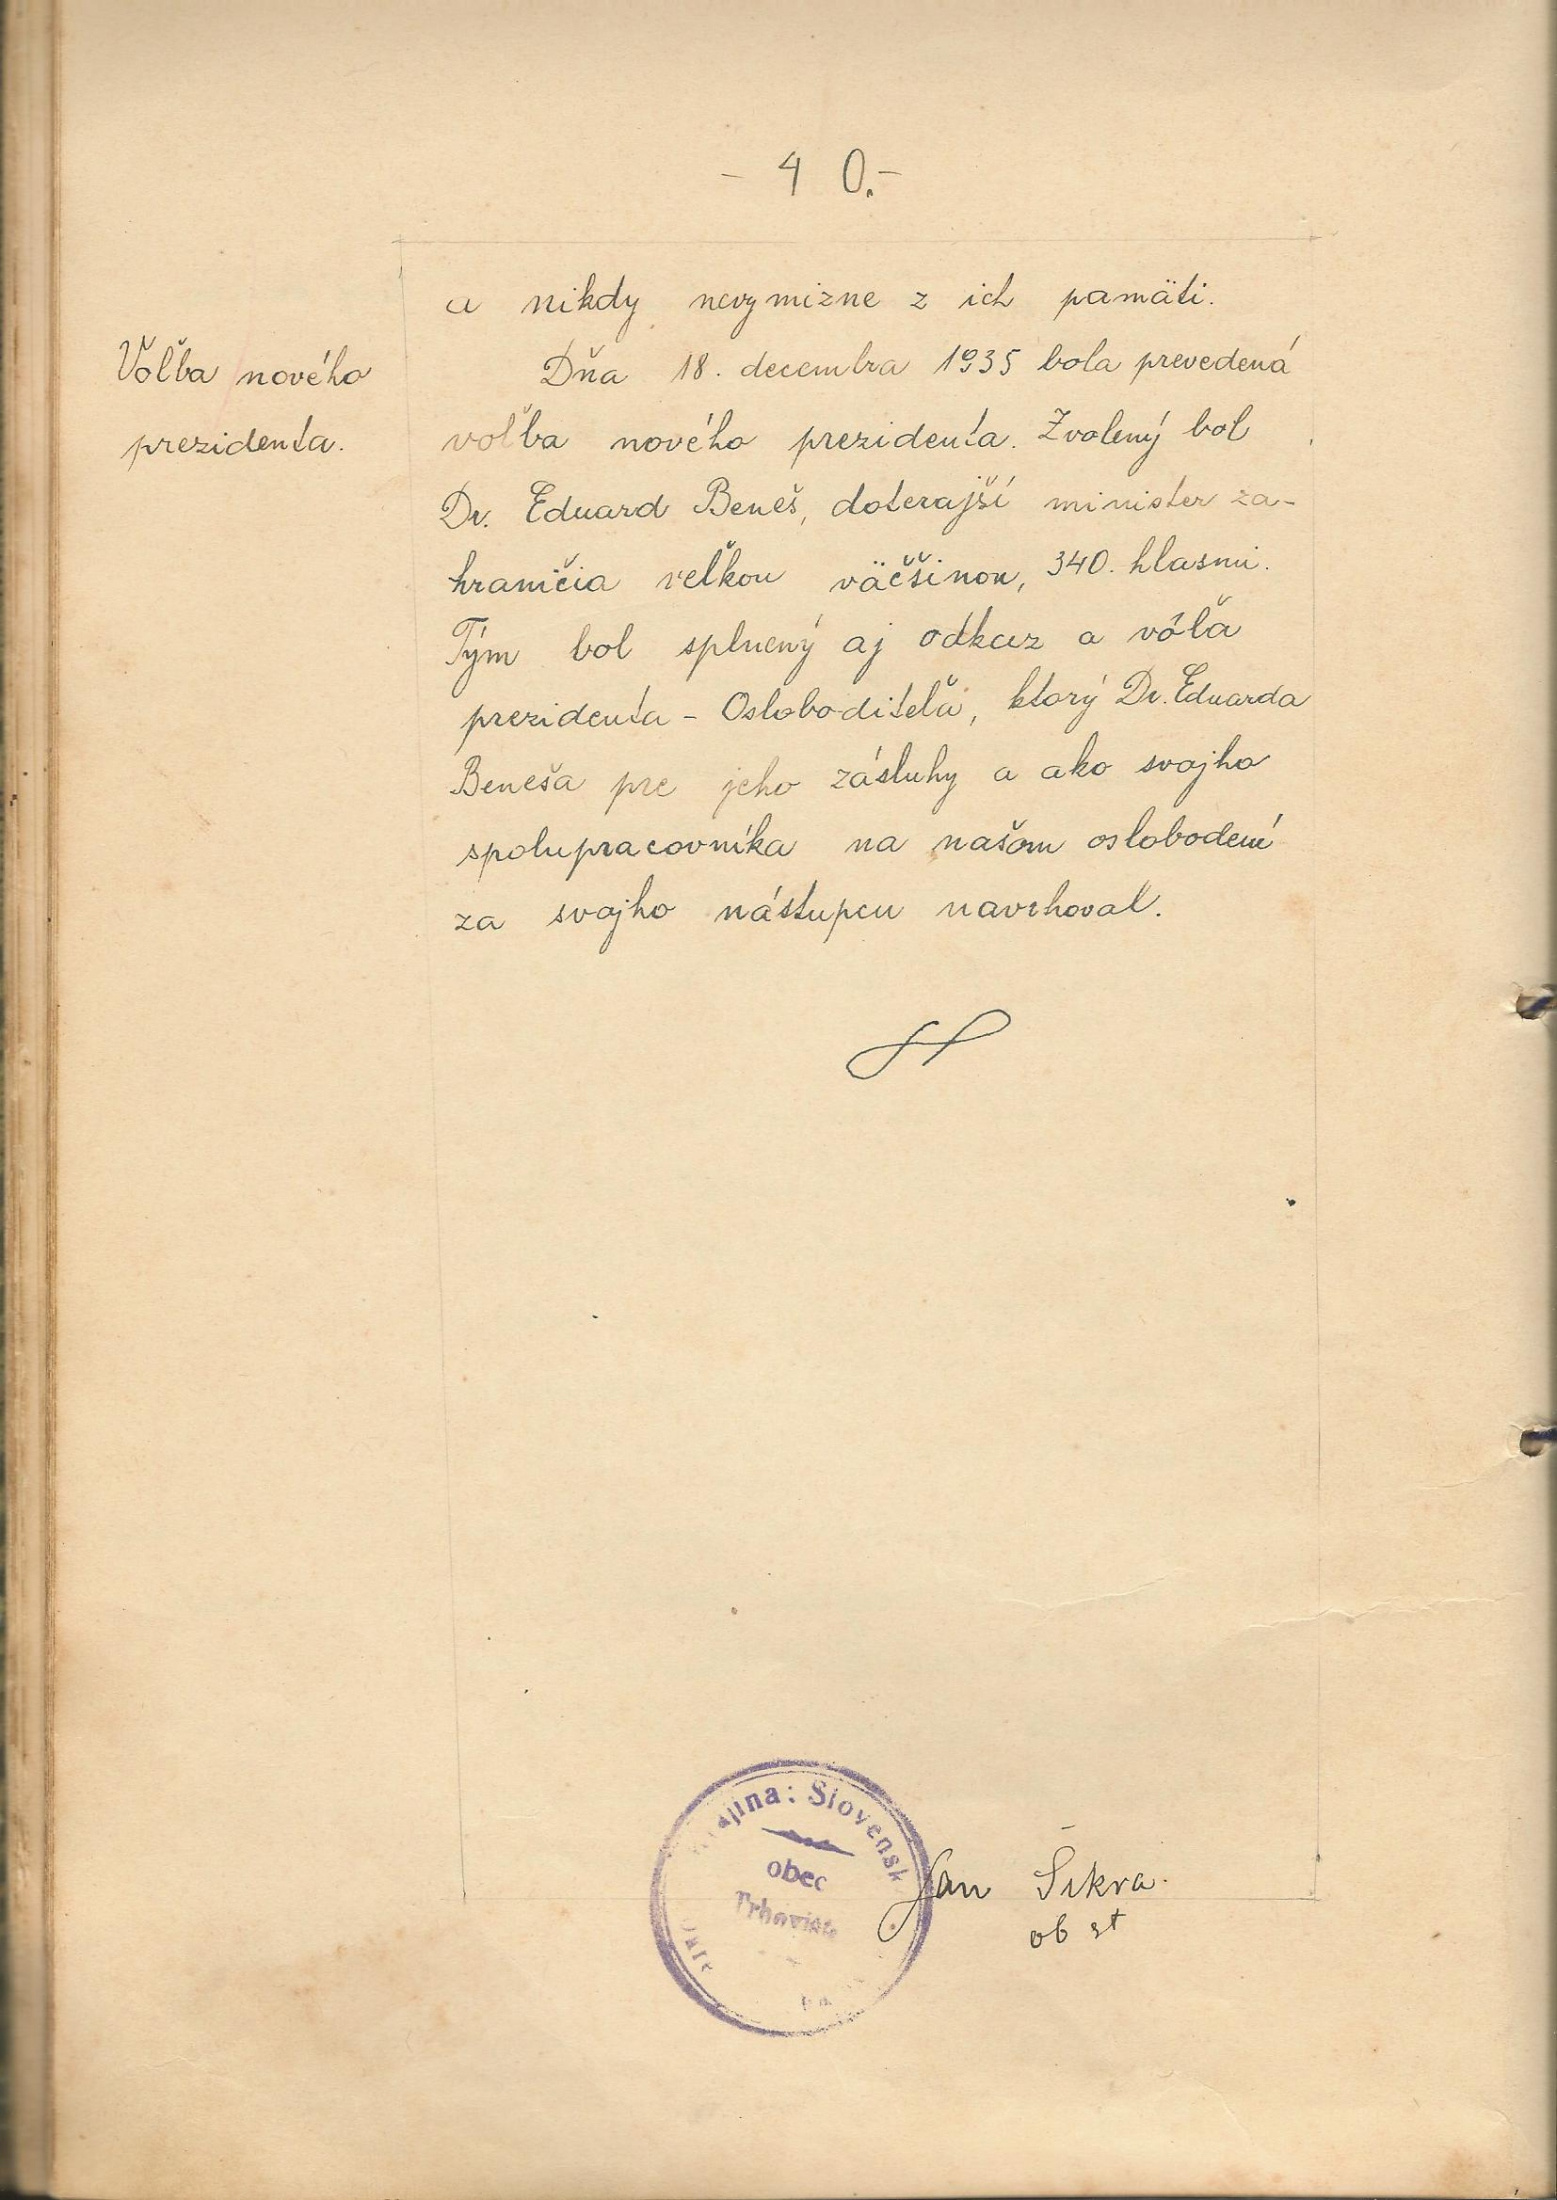 - 4 0.-
a nikdy nevymizne z ich pamäti.
Voľba nového
prezidenta.
Dňa 18. decembra 1935 bola prevedená
voľba nového prezidenta. Zvolený bol
Dr. Eduard Beneš, doterajší minister za-
hraničia veľkou väčšinou, 340. hlasmi.
Tým bol splnený aj odkaz a vôľa
prezidenta - Osloboditeľa, ktorý Dr. Eduarda
Beneša pre jeho zásluhy a ako svojho
spolupracovníka na našom oslobodení
za svojho nástupcu navrhoval.
Krajina: Slovensk
obec
Trhoviste
Jan Šikra.
ob st